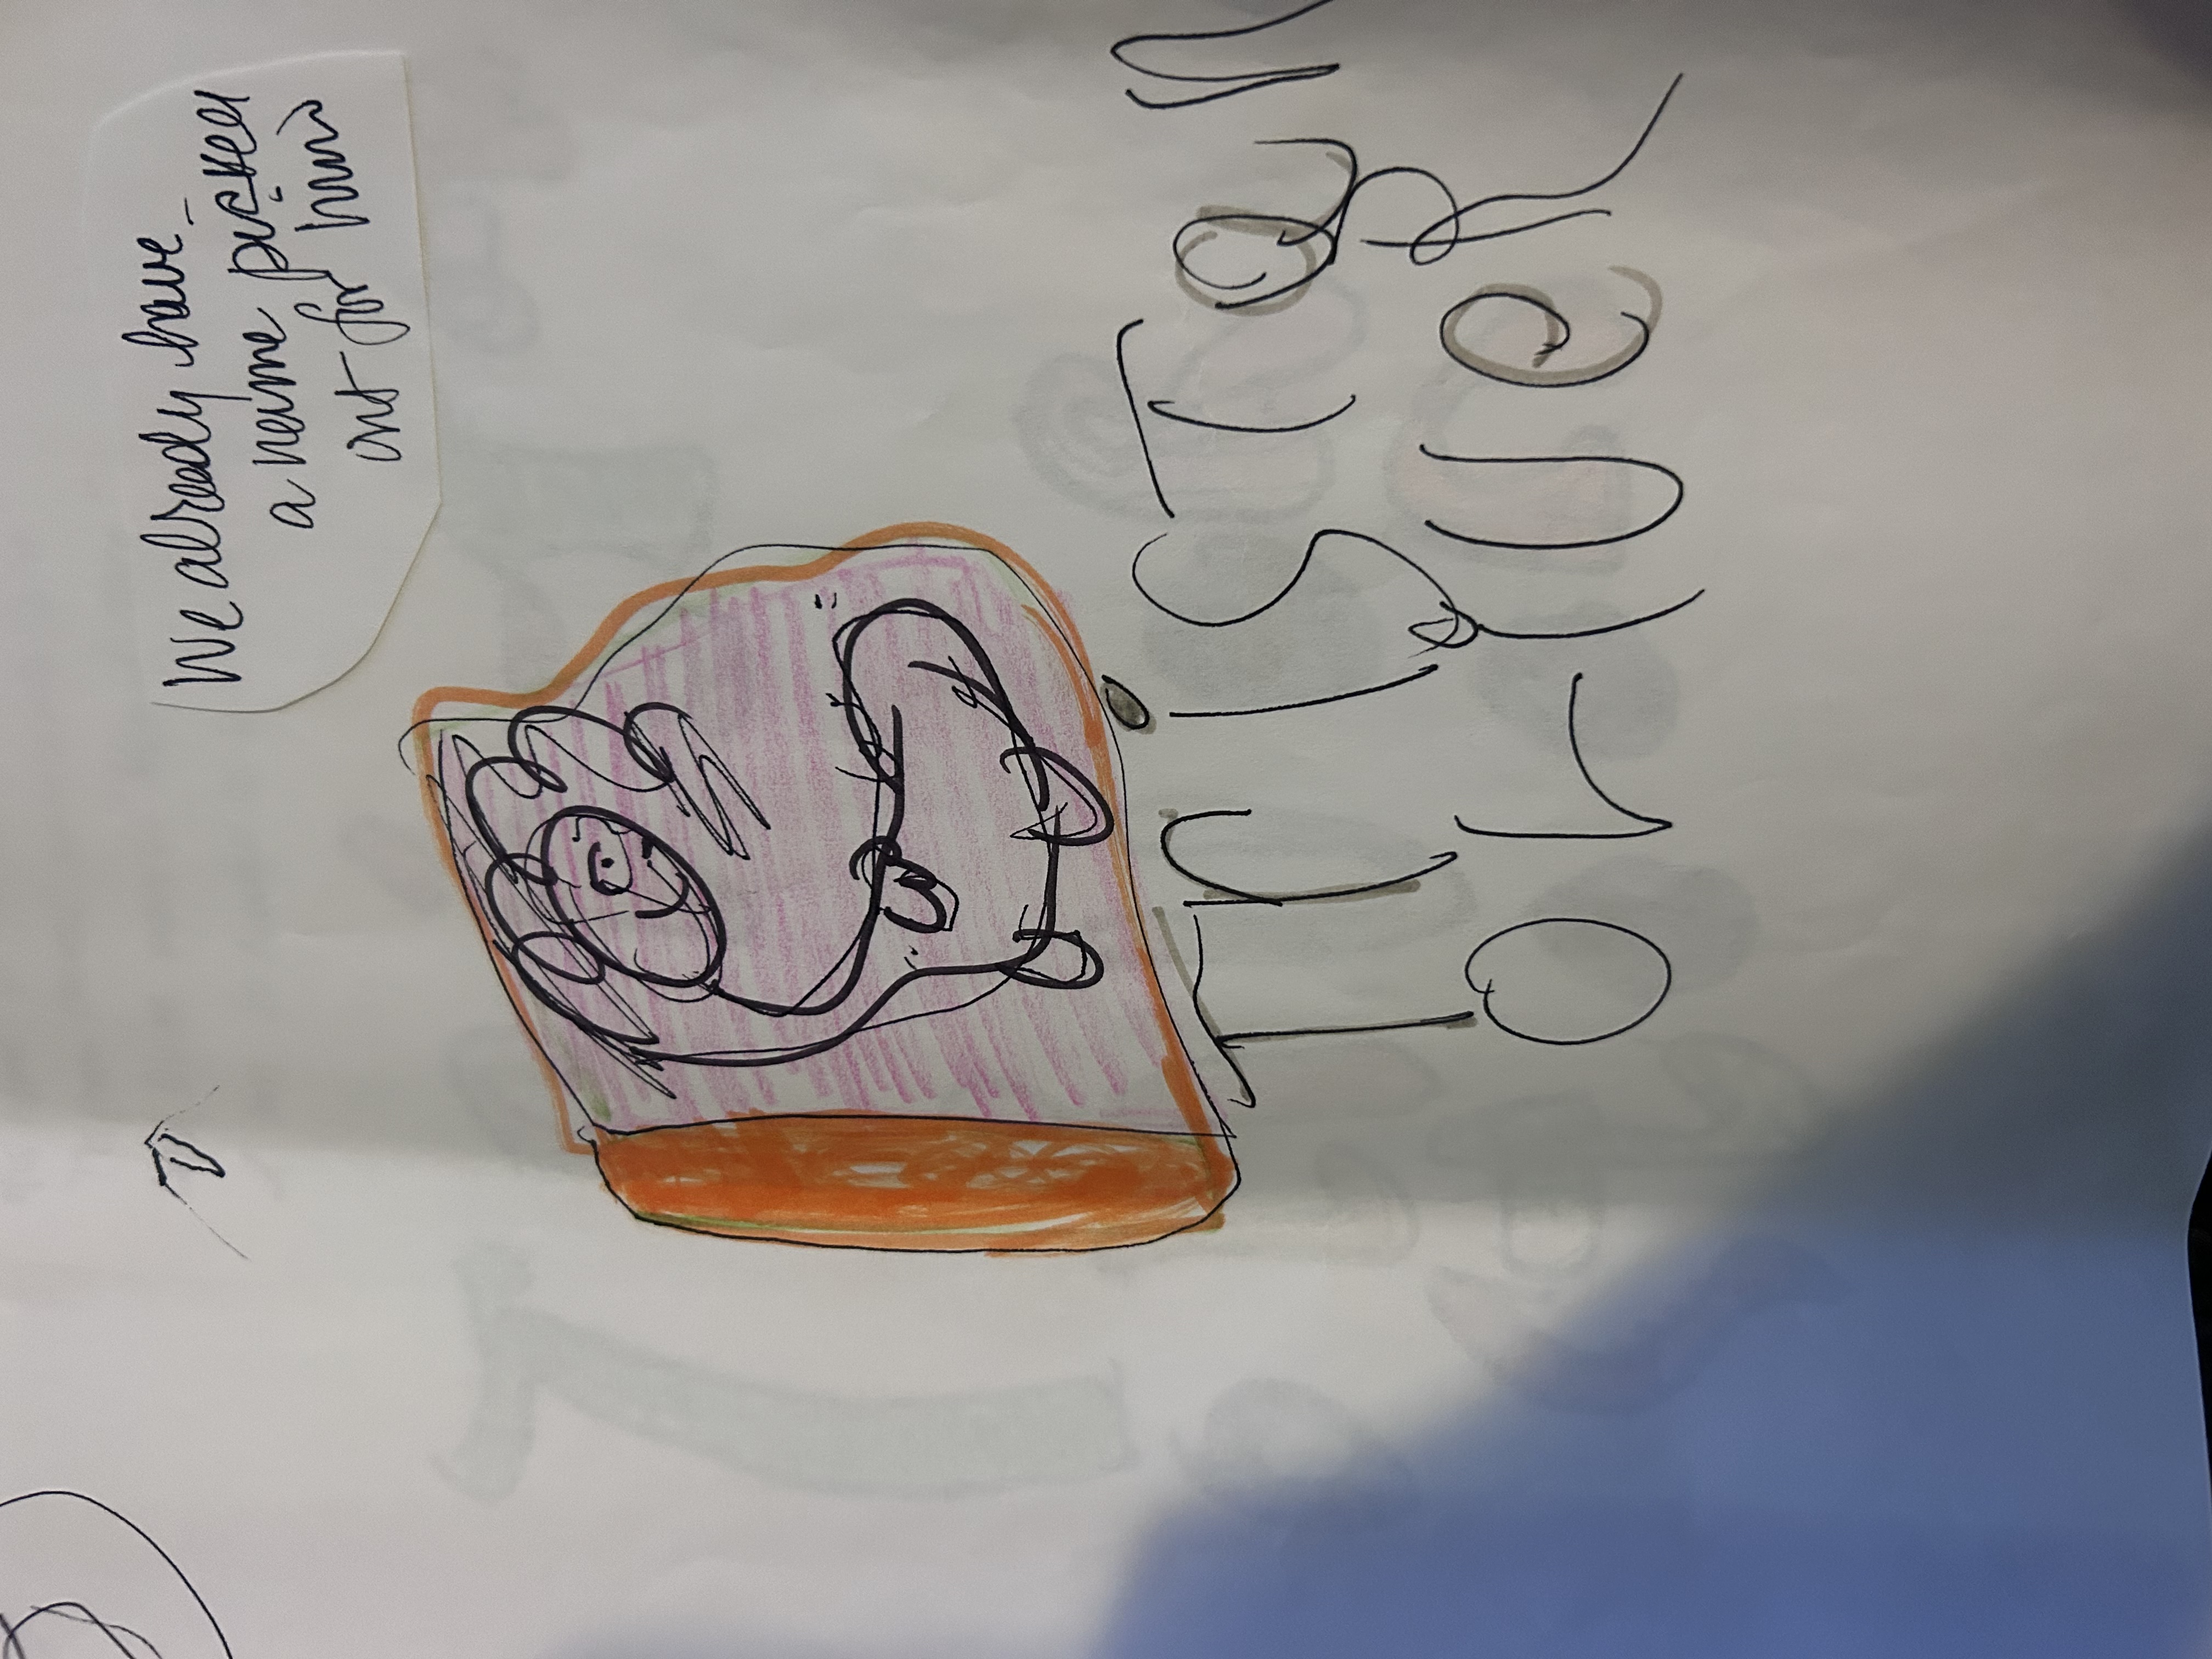 We already have
a name picked
out for him
Tristan
OLiVeR